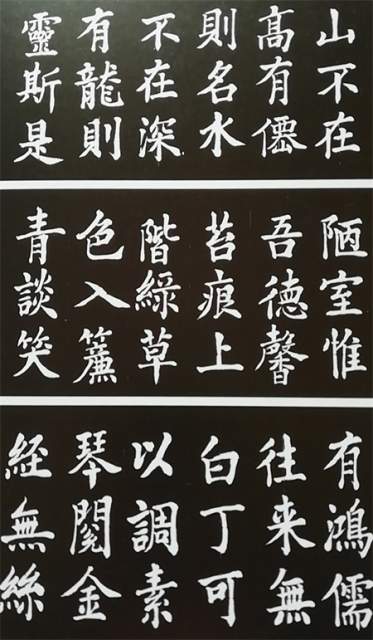 山不在
髙有僊
則名水
不在深
有龍則
靈斯是
陋室惟
吾德馨
苔痕上
階綠草
色入簾
青談笑
有鴻儒
往来無
白丁可
以調素
琴閱金
経無絲